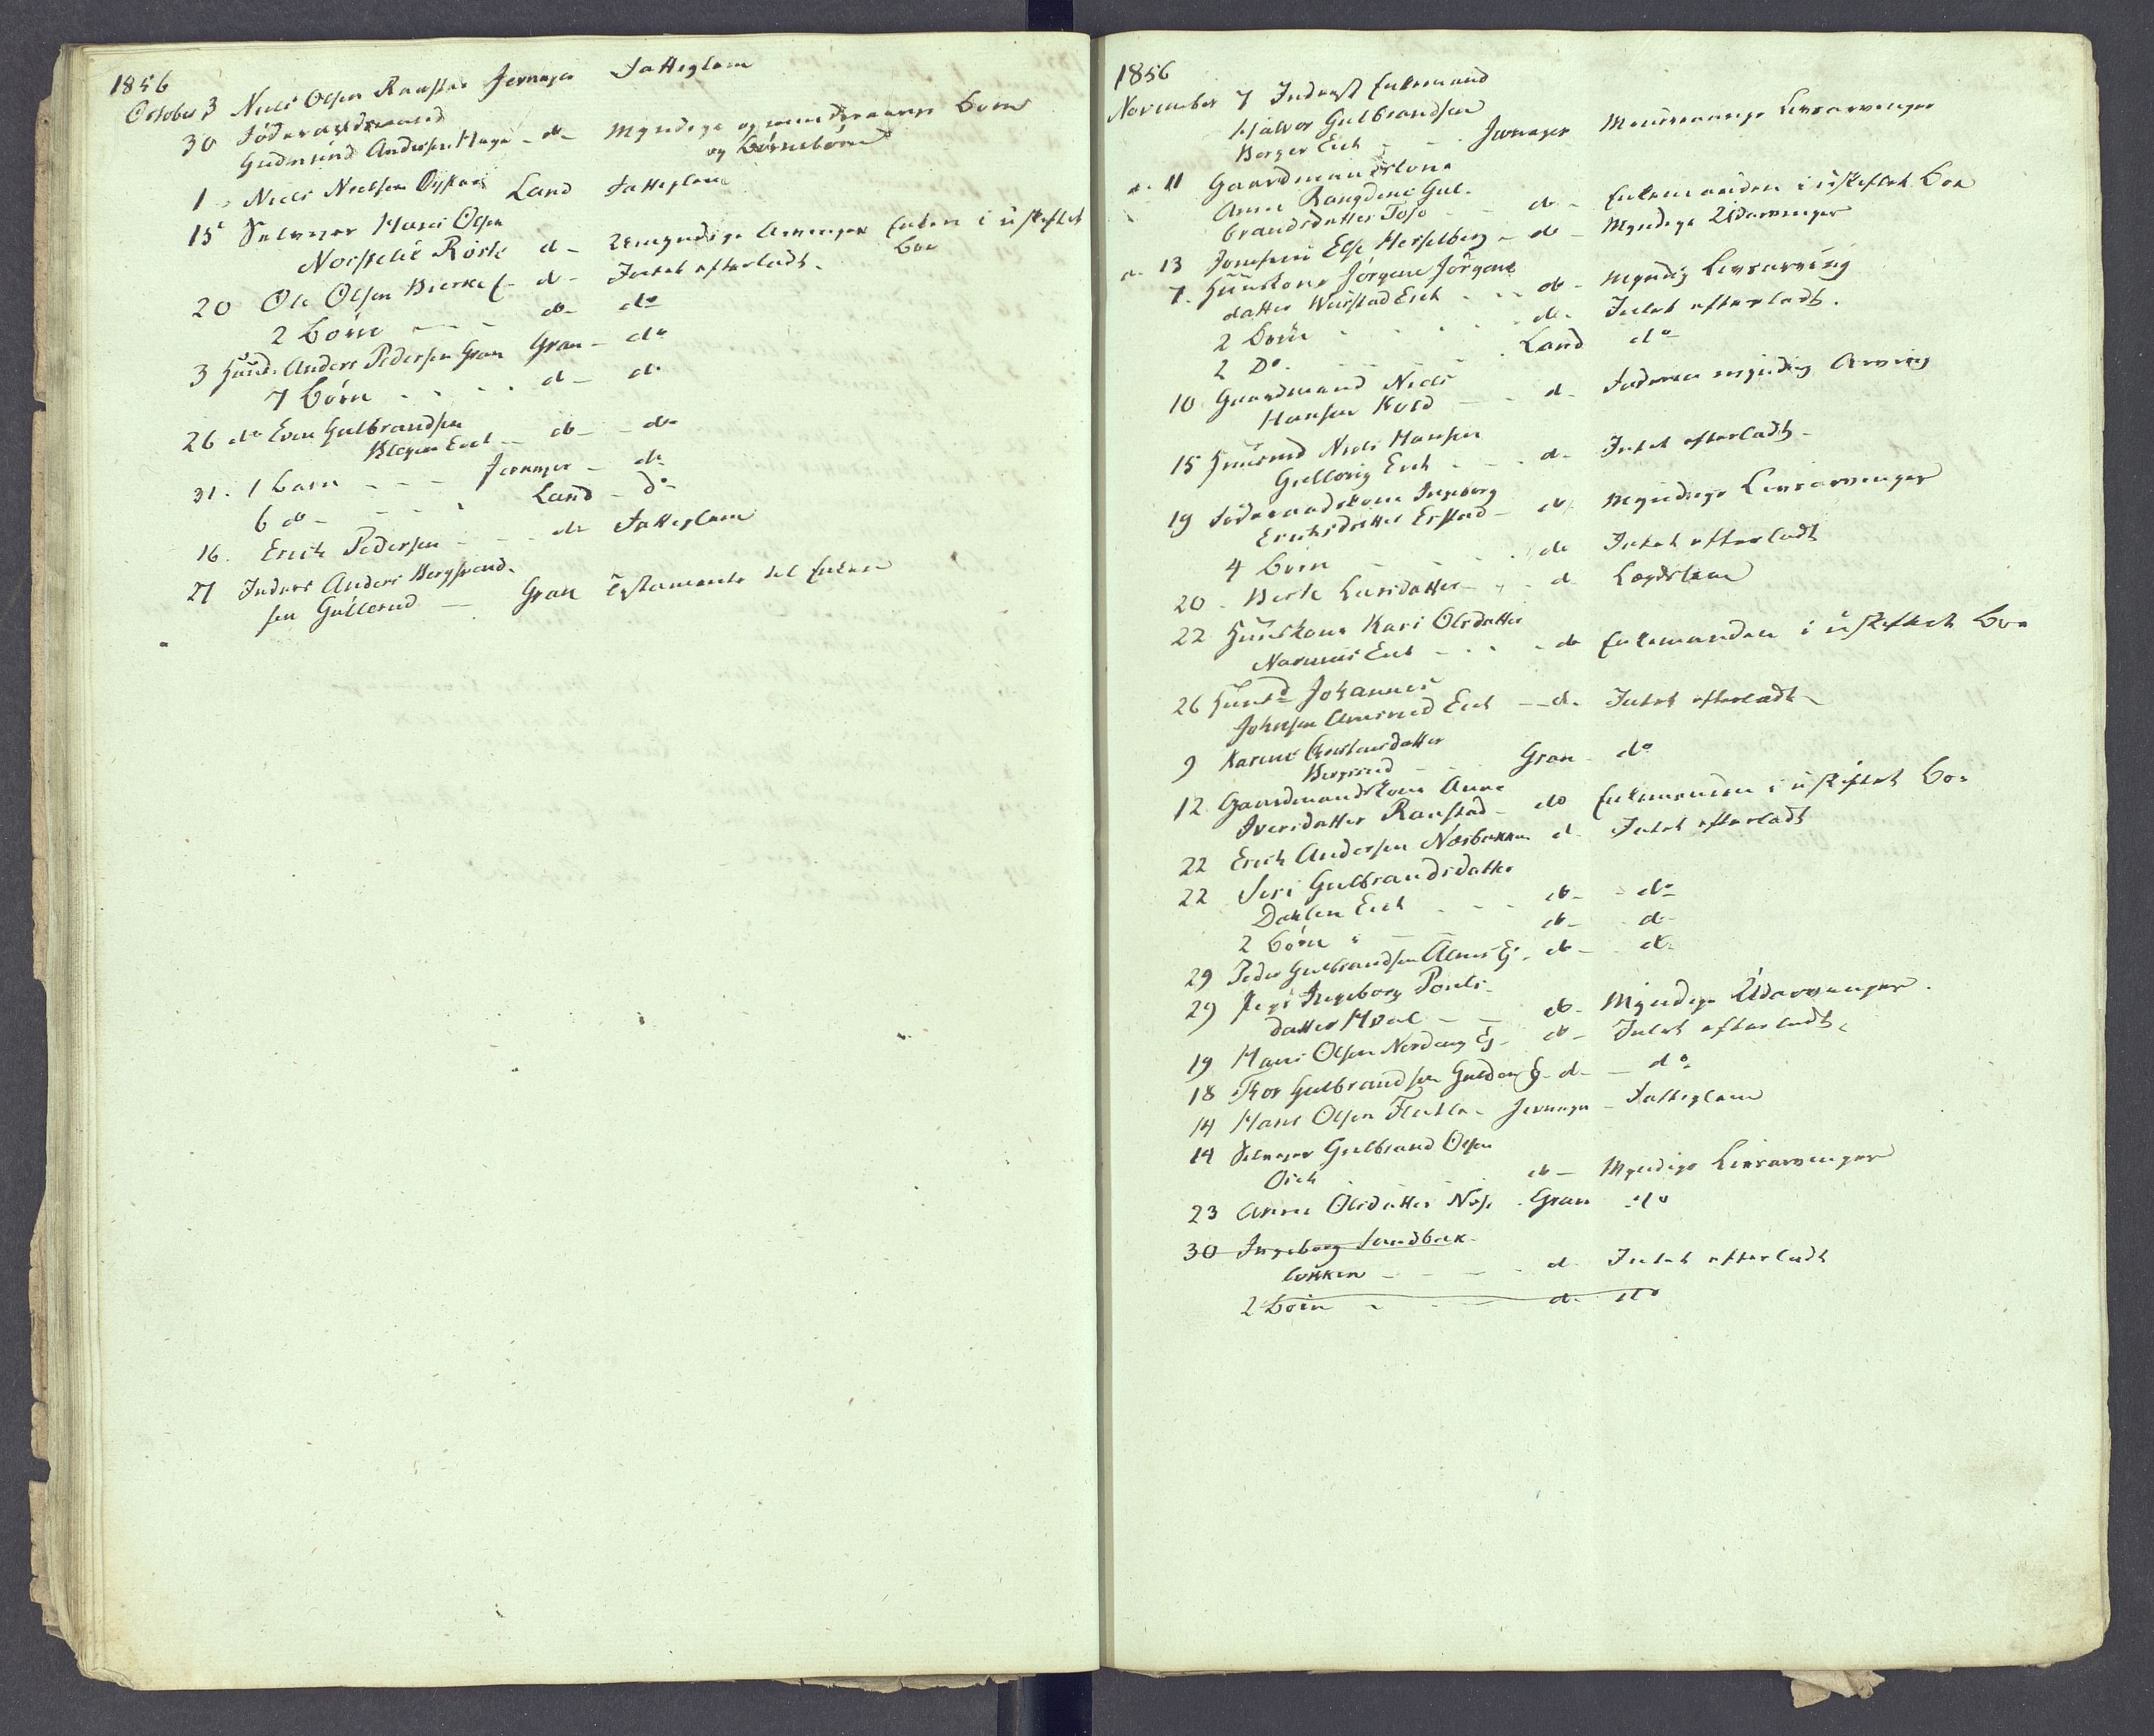 1856
October 3 Niels Olsen Ranstad Jevnager Fattiglem
30 Föderaadsmand
Gudmund Andersen Haga - do - Myndige og mindreaarige Börn
og Börnebörn
1 - Niels Nielsen Land Fattiglem
15 Selveier Hans Olsen
Norstelie Röste do - Umyndige Arvinger Enken i uskiftet
Boe
20 Ole Olsen Bierke - do - Intet efterladt.
2 Börn - - do - do
3 Huusmd. Anders Pedersen Gran Gran - do
7 Börn - - - do - do
26 do Even Gulbrandsen
Eiet - do - do
31. 1 Barn - - - Jevnager - do
6 do - - - Land - do
16. Erich Pedersen - - - do Fattiglem
27 Inderst Anders
sen Gullerud - Gran Testamente til Enken
1856
November 7 Inderst Enkemand
Halvor Gulbrandsen
Berger Eiet - - Jevnager Mindreaarige Livsarvinger
11 Gaardmandskone
Anne Rangdine Gul-
brandsdatter Toso - - do - Enkemanden i uskiftet Boe
13 Jomfrue Else Hesselberg - do - Myndige Udarvinger
7. Huuskone Jörgine Jörgens
datter Eiet - - do - Myndig Livsarving
2 Börn - - - - do - Intet efterladt.
2 Do. - - - - Land do
10 Gaardmand Niels
Hansen - - do - Faderen myndig Arving
15 Huusmd Niels Hansen
Gullerig Eiet - - - do - Intet efterladt -
19 Föderaadskone Ingeborg
Erichsdatter Erstad - do Myndige Livsarvinger
4 Börn - - do Intet efterladt
20 - Berte Larsdatter - - do Lægdslem
22 Huuskone Kari Olsdatter
Eiet - - - do Enkemanden i uskiftet Boe
26 Huusmd Johannes
Johnsen Amsrud Eiet - do - Intet efterladt -
9 Karine Christensdatter
- - Gran - do
12 Gaardmandskone Anne
Iversdatter Ranstad - do Enkemanden i uskiftet Boe
22 Erich Andersen Næsbakken do Intet efterladt
22 Siri Gulbrandsdatter
Dahlen Eiet - - - do - - do
2 Börn - - do - do
29 Peder Gulbrandsen Alms Ej. do - do
29 Pige Ingeborg Pouls-
datter Hval - - do - Myndige Udarvinger.
19 Hans Olsen Nordeng Ej - do - Intet efterladt,
18 Thor Gulbrandsen Gulden Ej - do - - do
14 Hans Olsen Flatla - Jevnager - Fattiglem
14 Selveier Gulbrand Olsen
Oieh - - - do - Myndige Livsarvinger
23 Anne Olsdatter Næs Gran do
30 Ingeborg Sandbæk-
bakken - - - - do Intet efterladt
2 Börn - - - do do